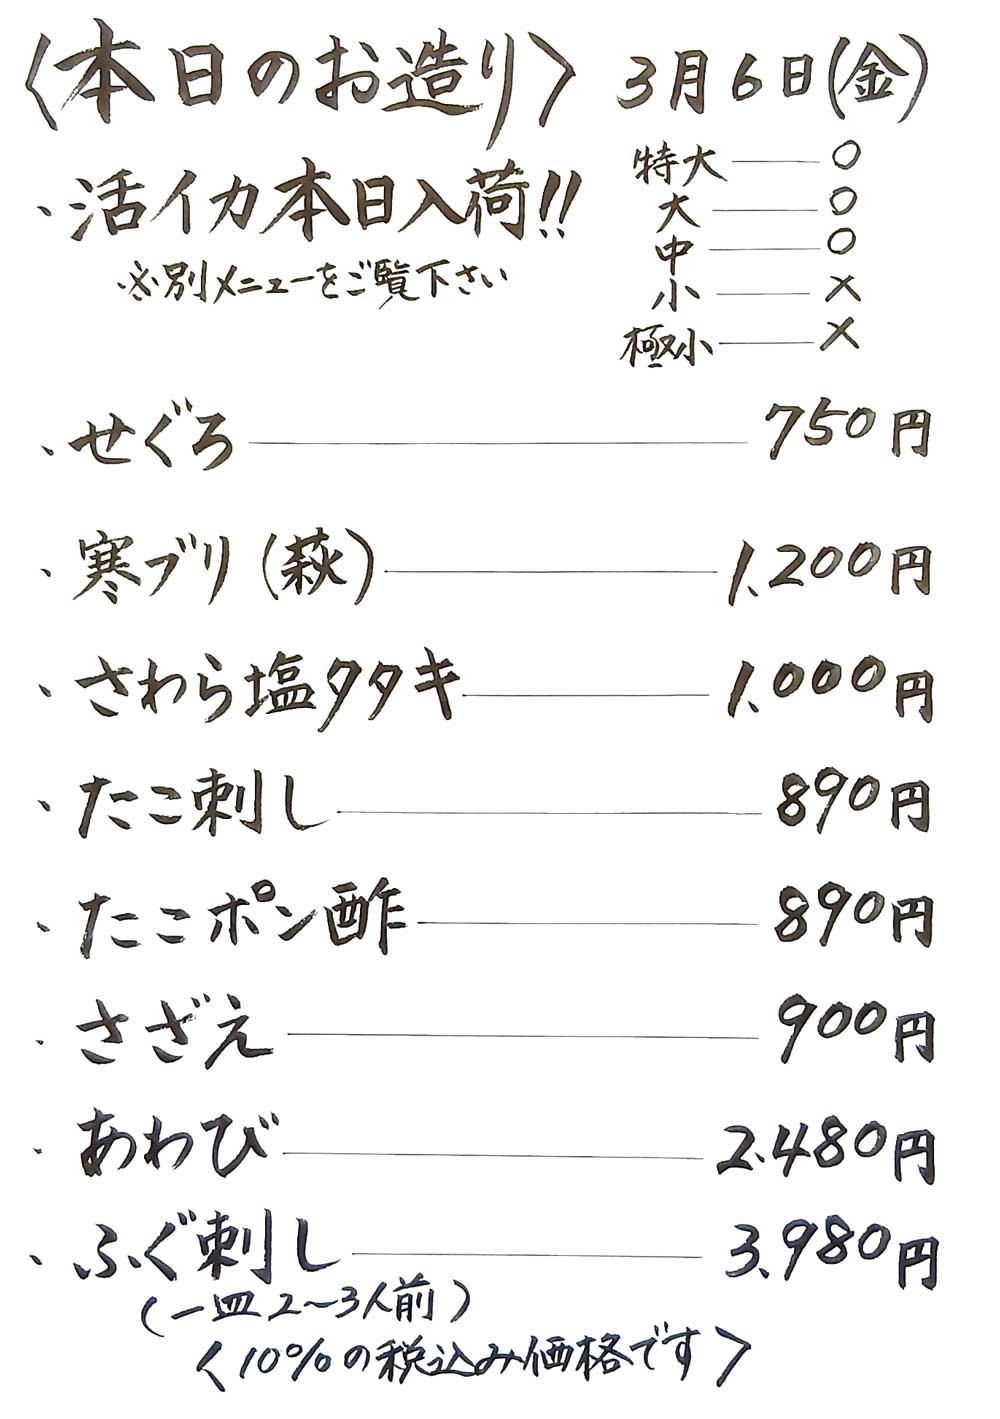 〈本日のお造り〉 3月6日(金)
・活イカ本日入荷!!
※別メニューをご覧下さい
特大 ― ○
大 ― ○
中 ― ○
小 ― ×
極小 ― ×
・せぐろ ― 750円
・寒ブリ(萩) ― 1.200円
・さわら塩タタキ ― 1.000円
・たこ刺し ― 890円
・たこポン酢 ― 890円
・さざえ ― 900円
・あわび ― 2.480円
・ふぐ刺し ― 3.980円
(一皿2～3人前)
〈10%の税込み価格です〉